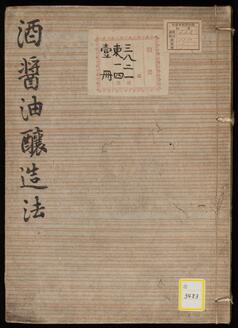 酒醤油釀造法
三八二一
東一四
壹冊
3483